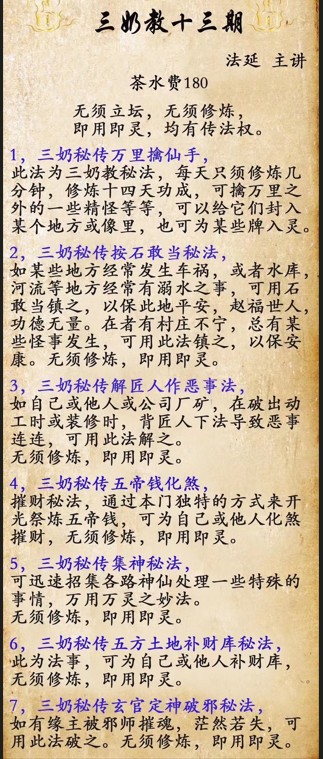 三奶教十三期
法延 主讲
茶水费180
无须立坛，无须修炼，
即用即灵，均有传法权。
1，三奶秘传万里擒仙手，
此法为三奶教秘法，每天只须修炼几
分钟，修炼十四天功成，可擒万里之
外的一些精怪等等，可以给它们封入
某个地方或像里，也可为某些牌入灵。
2，三奶秘传按石敢当秘法，
如某些地方经常发生车祸，或者水库，
河流等地方经常有溺水之事，可用石
敢当镇之，以保此地平安，赵福世人，
功德无量。在者有村庄不宁，总有某
些怪事发生，可用此法镇之，以保安
康。无须修炼，即用即灵。
3，三奶秘传解匠人作恶事法，
如自己或他人或公司厂矿，在破出动
工时或装修时，背匠人下法导致恶事
连连，可用此法解之。
无须修炼，即用即灵。
4，三奶秘传五帝钱化煞，
摧财秘法，通过本门独特的方式来开
光祭炼五帝钱，可为自己或他人化煞
摧财，无须修炼，即用即灵。
5，三奶秘传集神秘法，
可迅速招集各路神仙处理一些特殊的
事情，万用万灵之妙法。
无须修炼，即用即灵。
6，三奶秘传五方土地补财库秘法，
此为法事，可为自己或他人补财库，
无须修炼，即用即灵。
7，三奶秘传玄官定神破邪秘法，
如有缘主被邪师摧魂，茫然若失，可
用此法破之。无须修炼，即用即灵。